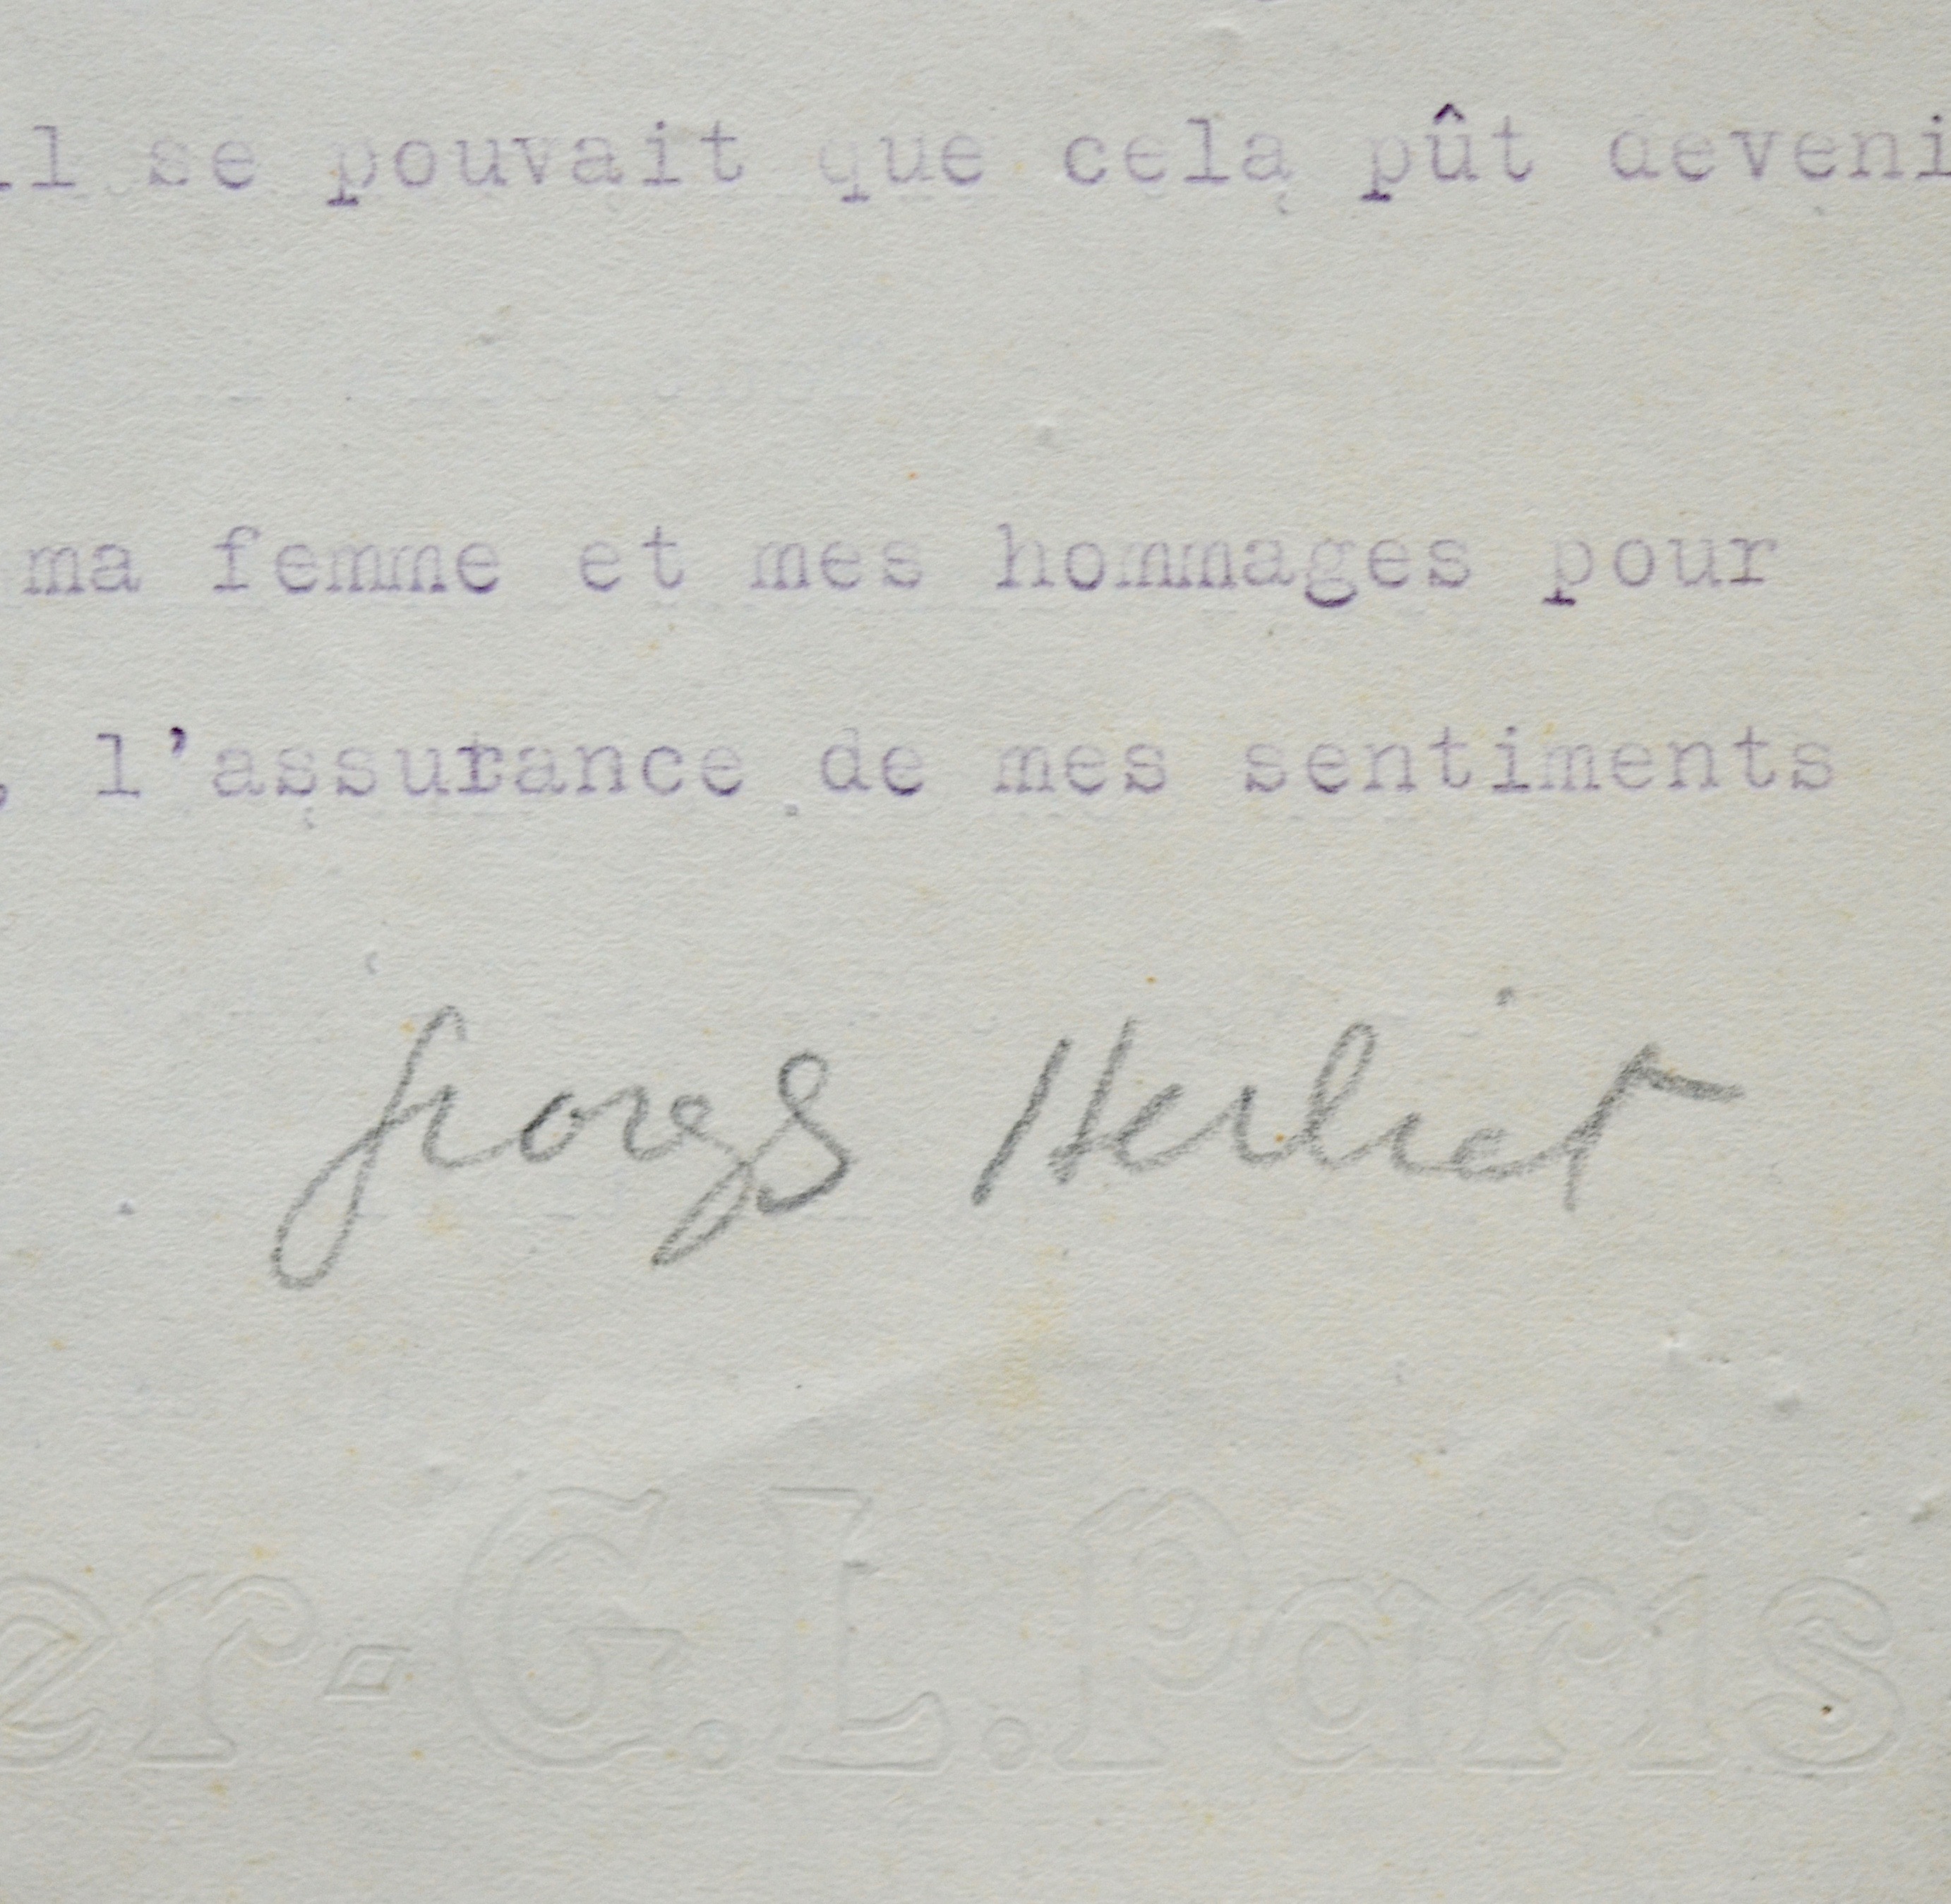 il se pouvait que cela pût deveni
ma femme et mes hommages pour
, l'assurance de mes sentiments
Georges Herbiet
er-G.L.Paris